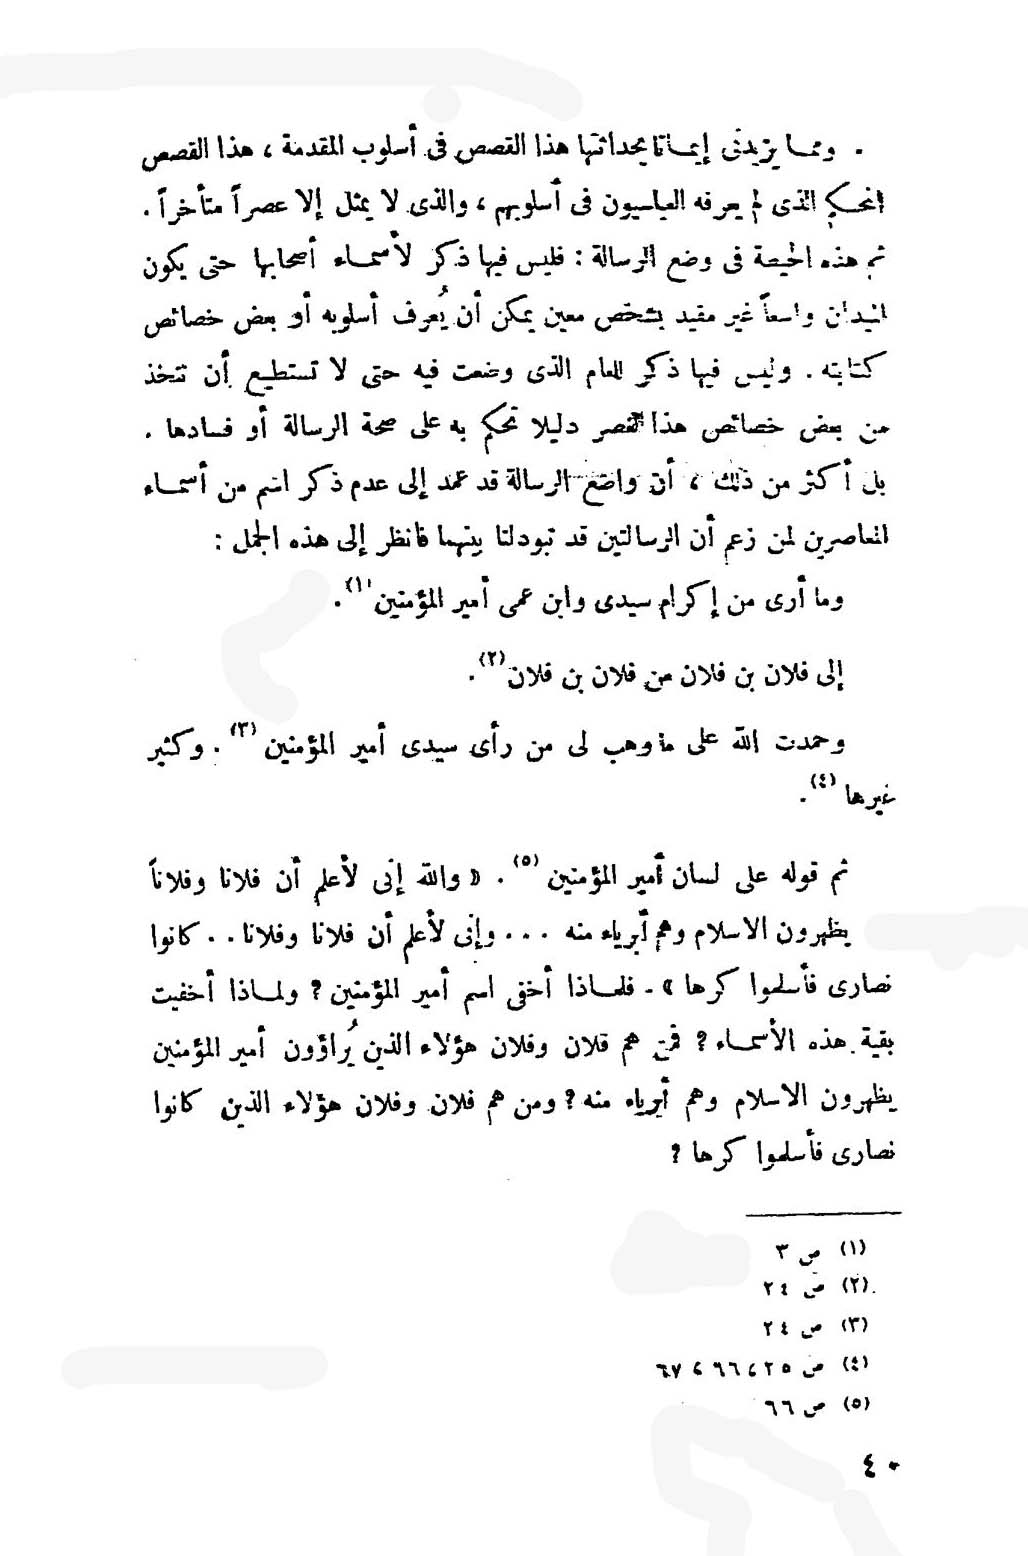 . ومما يزيدنى إيمانا بحداثتها هذا القصص فى أسلوب المقدمة ، هذا القصص
المحكم الذى لم يعرفه العباسيون فى أسلوبهم ، والذى لا يمثل إلا عصراً متأخراً .
ثم هذه الحيصة فى وضع الرسالة : فليس فيها ذكر لأسماء أصحابها حتى يكون
الميدان واسعاً غير مقيد بشخص معين يمكن أن يُعرف أسلوبه أو بعض خصائص
كتابته . وليس فيها ذكر للعام الذى وضعت فيه حتى لا تستطيع أن تتخذ
من بعض خصائص هذا العصر دليلا تحكم به على صحة الرسالة أو فسادها .
بل أكثر من ذلك ، أن واضع الرسالة قد عمد إلى عدم ذكر اسم من أسماء
المعاصرين لمن زعم أن الرسالتين قد تبودلتا بينهما فانظر إلى هذه الجمل :
وما أرى من إكرام سيدى وابن عمى أمير المؤمنين (١) .
إلى فلان بن فلان من فلان بن فلان (٢) .
وحمدت الله على ما وهب لى من رأى سيدى أمير المؤمنين (٣) . وكثير
غيرها (٤) .
ثم قوله على لسان أمير المؤمنين (٥) . « والله إنى لأعلم أن فلانا وفلاناً
يظهرون الاسلام وهم أبرياء منه ... وإنى لأعلم أن فلانا وفلانا .. كانوا
نصارى فأسلموا كرها » . فلماذا أخفى اسم أمير المؤمنين ؟ ولماذا أخفيت
بقية هذه الأسماء ؟ فمن هم فلان وفلان هؤلاء الذين يُراؤون أمير المؤمنين
يظهرون الاسلام وهم أبرياء منه ؟ ومن هم فلان وفلان هؤلاء الذين كانوا
نصارى فأسلموا كرها ؟
(١) ص ٣
(٢) ص ٢٤
(٣) ص ٢٤
(٤) ص ٢٥ ، ٦٦ ، ٦٧
(٥) ص ٦٦
٤٠